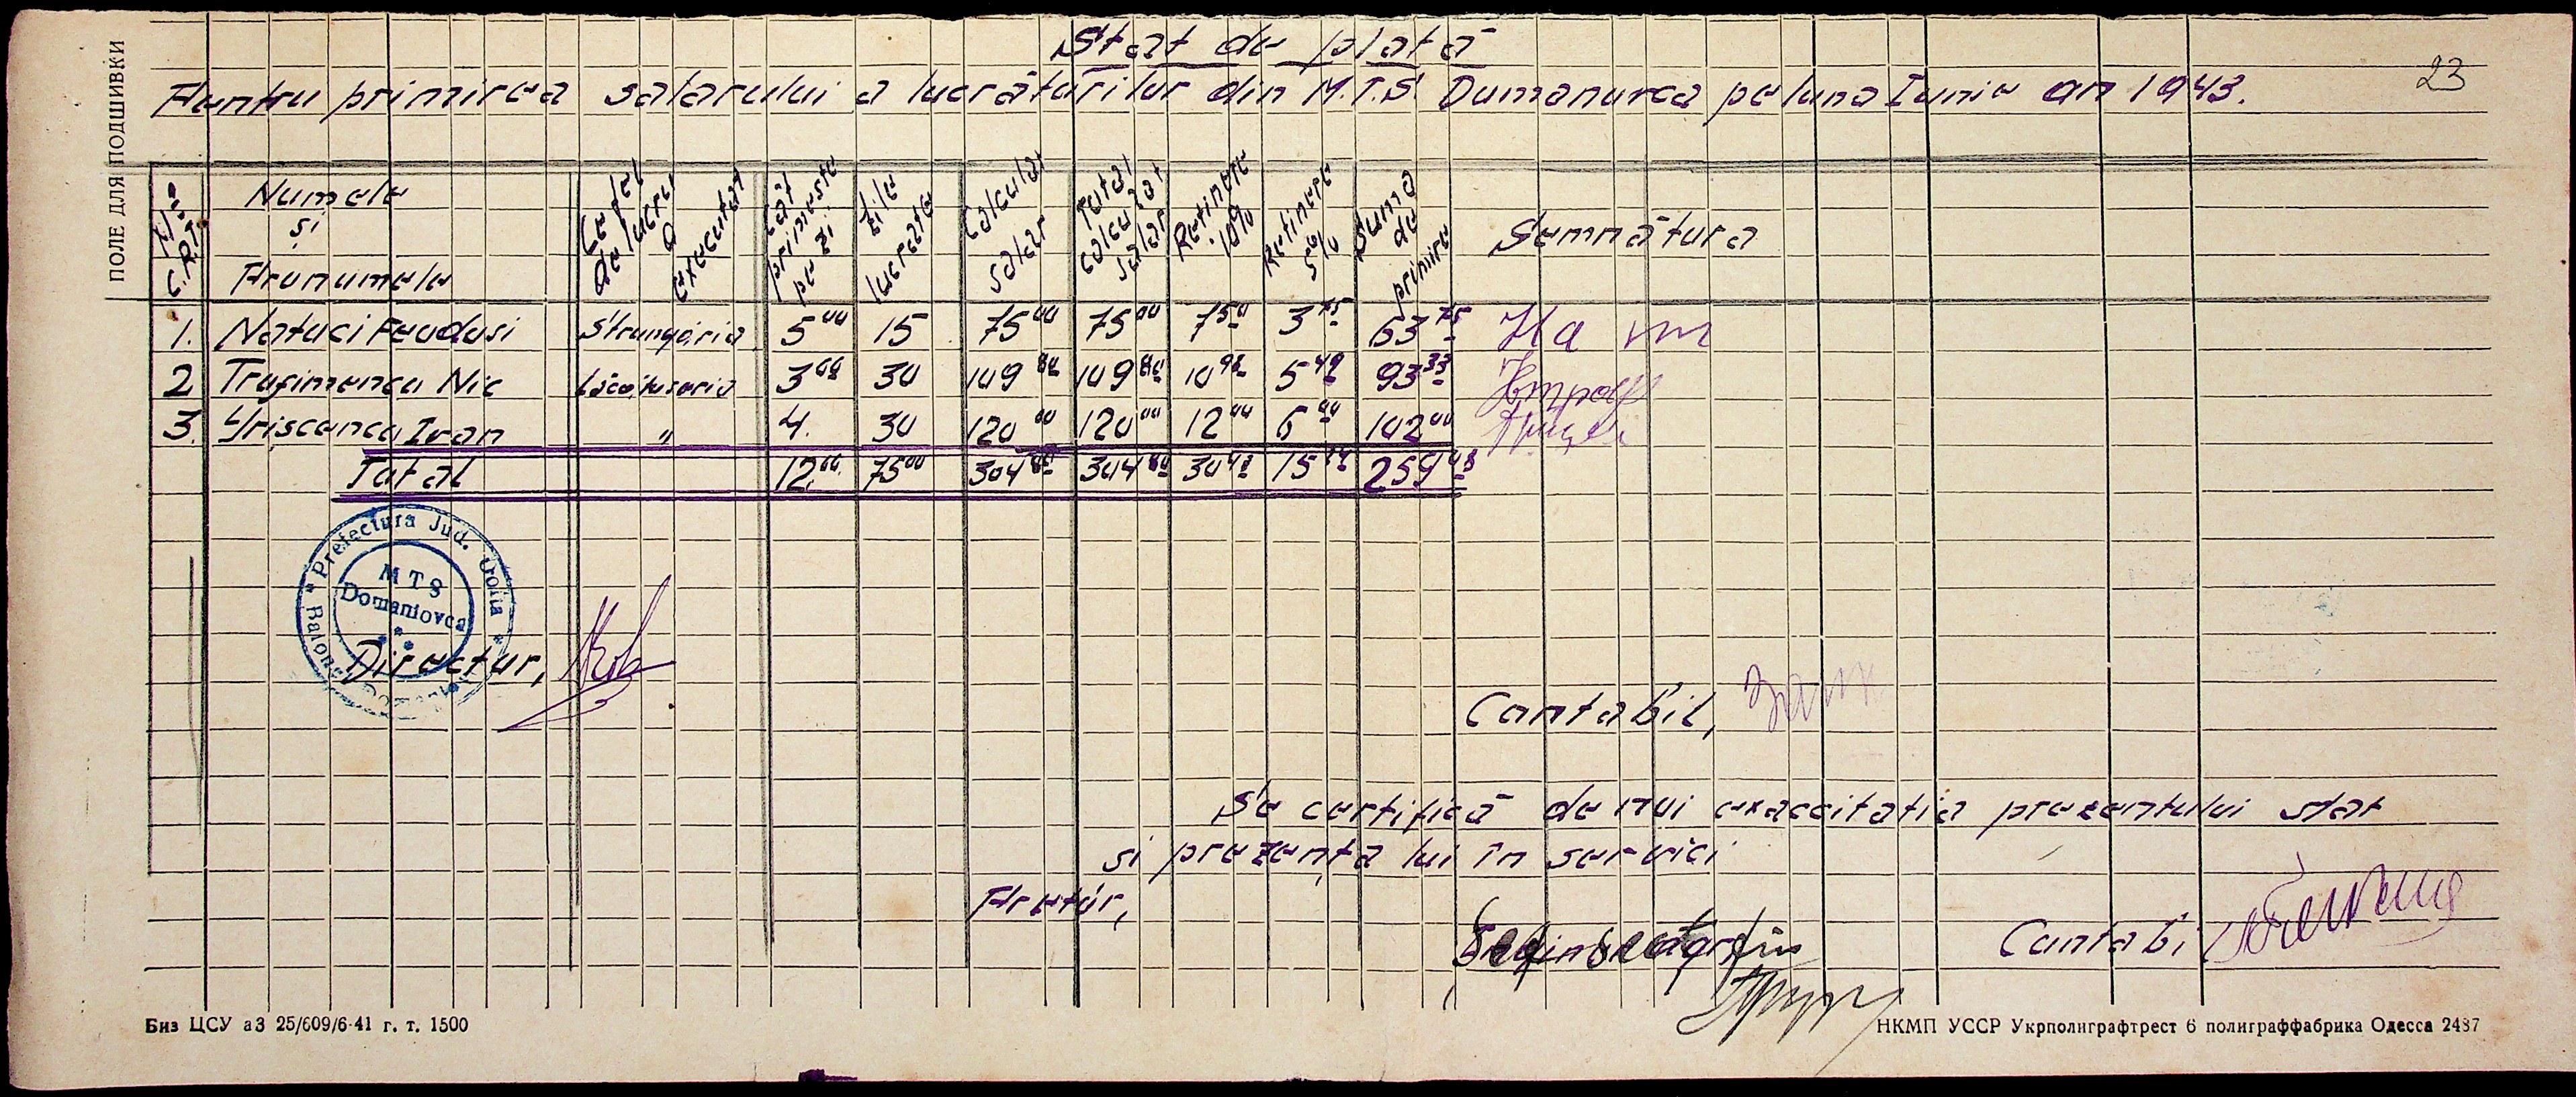 Stat de plată
23
Pentru primirea salarului a lucrăturilor din M.T.S. Dumanovca pe luna Iunie an 1943.
ПОЛЕ ДЛЯ ПОДШИВКИ
No C.R.T. | Numele și Pronumele | Ce fel de lucru a executat | Cât primește pe zi | Zile lucrate | Calculat salar | Total calculat salar | Retinere 10% | Retinere 5% | Suma de primire | Semnătura
1. Natuci Feodosi Strungăria 5 00 15 75 00 75 00 7 50 3 75 63 75
2. Trofimenco Nic Lăcătușaria 3 66 30 109 80 109 80 10 98 5 49 93 33
3. Grișcenco Ivan " 4. 30 120 00 120 00 12 00 6 00 102 00
Total 12.66 75 00 304 80 304 80 30 48 15 24 259 08
Prefectura Jud. Golta
MTS
Domaniovca
Director,
Contabil,
Se certifică de noi exaccitatia prezentului stat
si prezența lui în servici
Pretor,
Contabil
Биз ЦСУ аЗ 25/609/6-41 г. т. 1500
НКМП УССР Укрполиграфтрест 6 полиграффабрика Одесса 2487